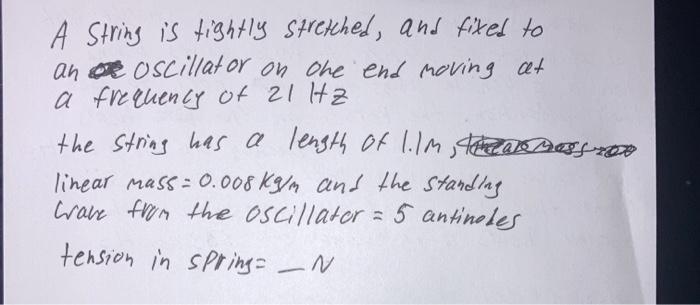 A String is tightly stretched, and fixed to
an oscillator on one end moving at
a frequency of 21 Hz
the string has a length of 1.1m,
linear mass = 0.008 kg/m and the standing
wave from the oscillator = 5 antinodes
tension in spring = _ N